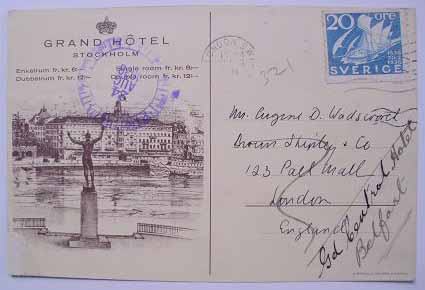 GRAND HÔTEL
STOCKHOLM
Enkelrum fr. kr. 6:— Single room fr. kr. 6:—
Dubbelrum fr. kr. 12:— Double room fr. kr. 12:—
LONDON
321
20 öre
SVERIGE
Mr. Eugene D. Wadsworth
Brown Shipley & Co
123 Pall Mall
London
England
Gd Central Hotel
Belfast